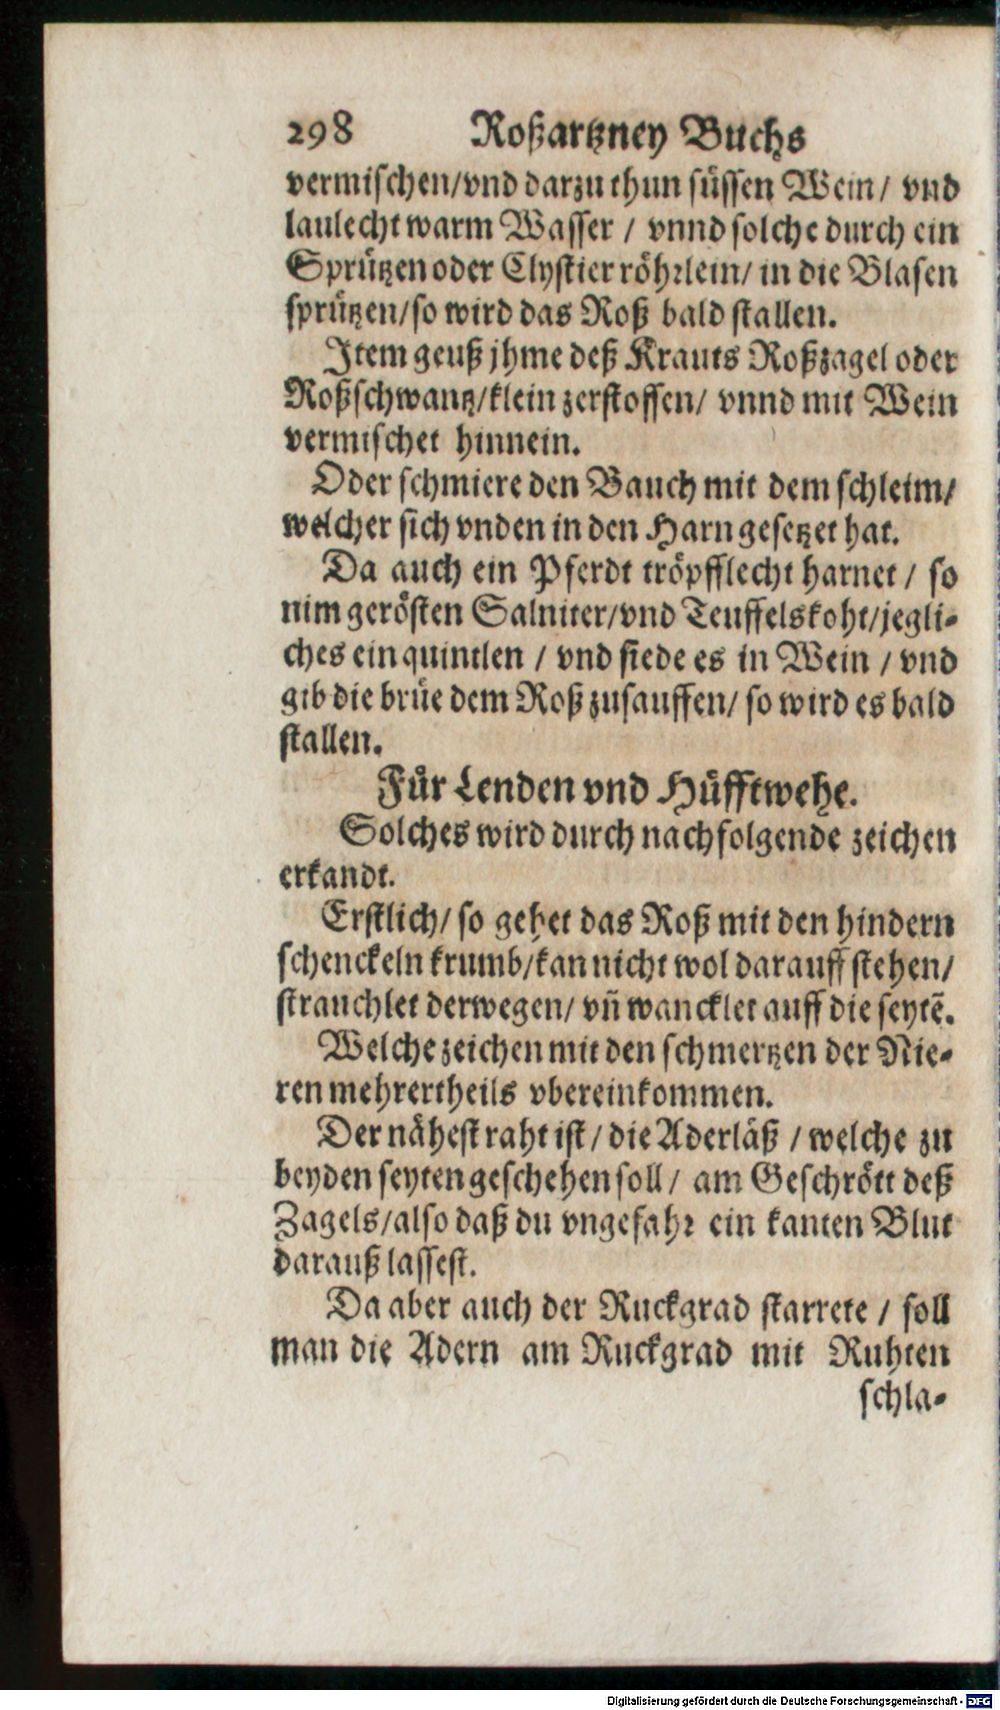 298 Roßartzney Buchs
vermischen/vnd darzu thun süssen Wein/ vnd
laulecht warm Wasser / vnnd solche durch ein
Sprützen oder Clystier röhrlein/ in die Blasen
sprützen/so wird das Roß bald stallen.
Item geuß jhme deß Krauts Roßzagel oder
Roßschwantz/klein zerstossen/ vnnd mit Wein
vermischet hinnein.
Oder schmiere den Bauch mit dem schleim/
welcher sich vnden in den Harn gesetzet hat.
Da auch ein Pferdt tröpfflecht harnet / so
nim gerösten Salniter/vnd Teuffelskoht/jegli-
ches ein quintlen / vnd siede es in Wein / vnd
gib die brüe dem Roß zusauffen/ so wird es bald
stallen.
Für Lenden vnd Hüfftwehe.
Solches wird durch nachfolgende zeichen
erkandt.
Erstlich/ so gehet das Roß mit den hindern
schenckeln krumb/kan nicht wol darauff stehen/
strauchlet derwegen/ vñ wancklet auff die seytẽ.
Welche zeichen mit den schmertzen der Nie-
ren mehrertheils vbereinkommen.
Der nähest raht ist / die Aderläß / welche zu
beyden seyten geschehen soll/ am Geschrött deß
Zagels/also daß du vngefahr ein kanten Blut
darauß lassest.
Da aber auch der Ruckgrad starrete / soll
man die Adern am Ruckgrad mit Ruhten
schla-
Digitalisierung gefördert durch die Deutsche Forschungsgemeinschaft - DFG